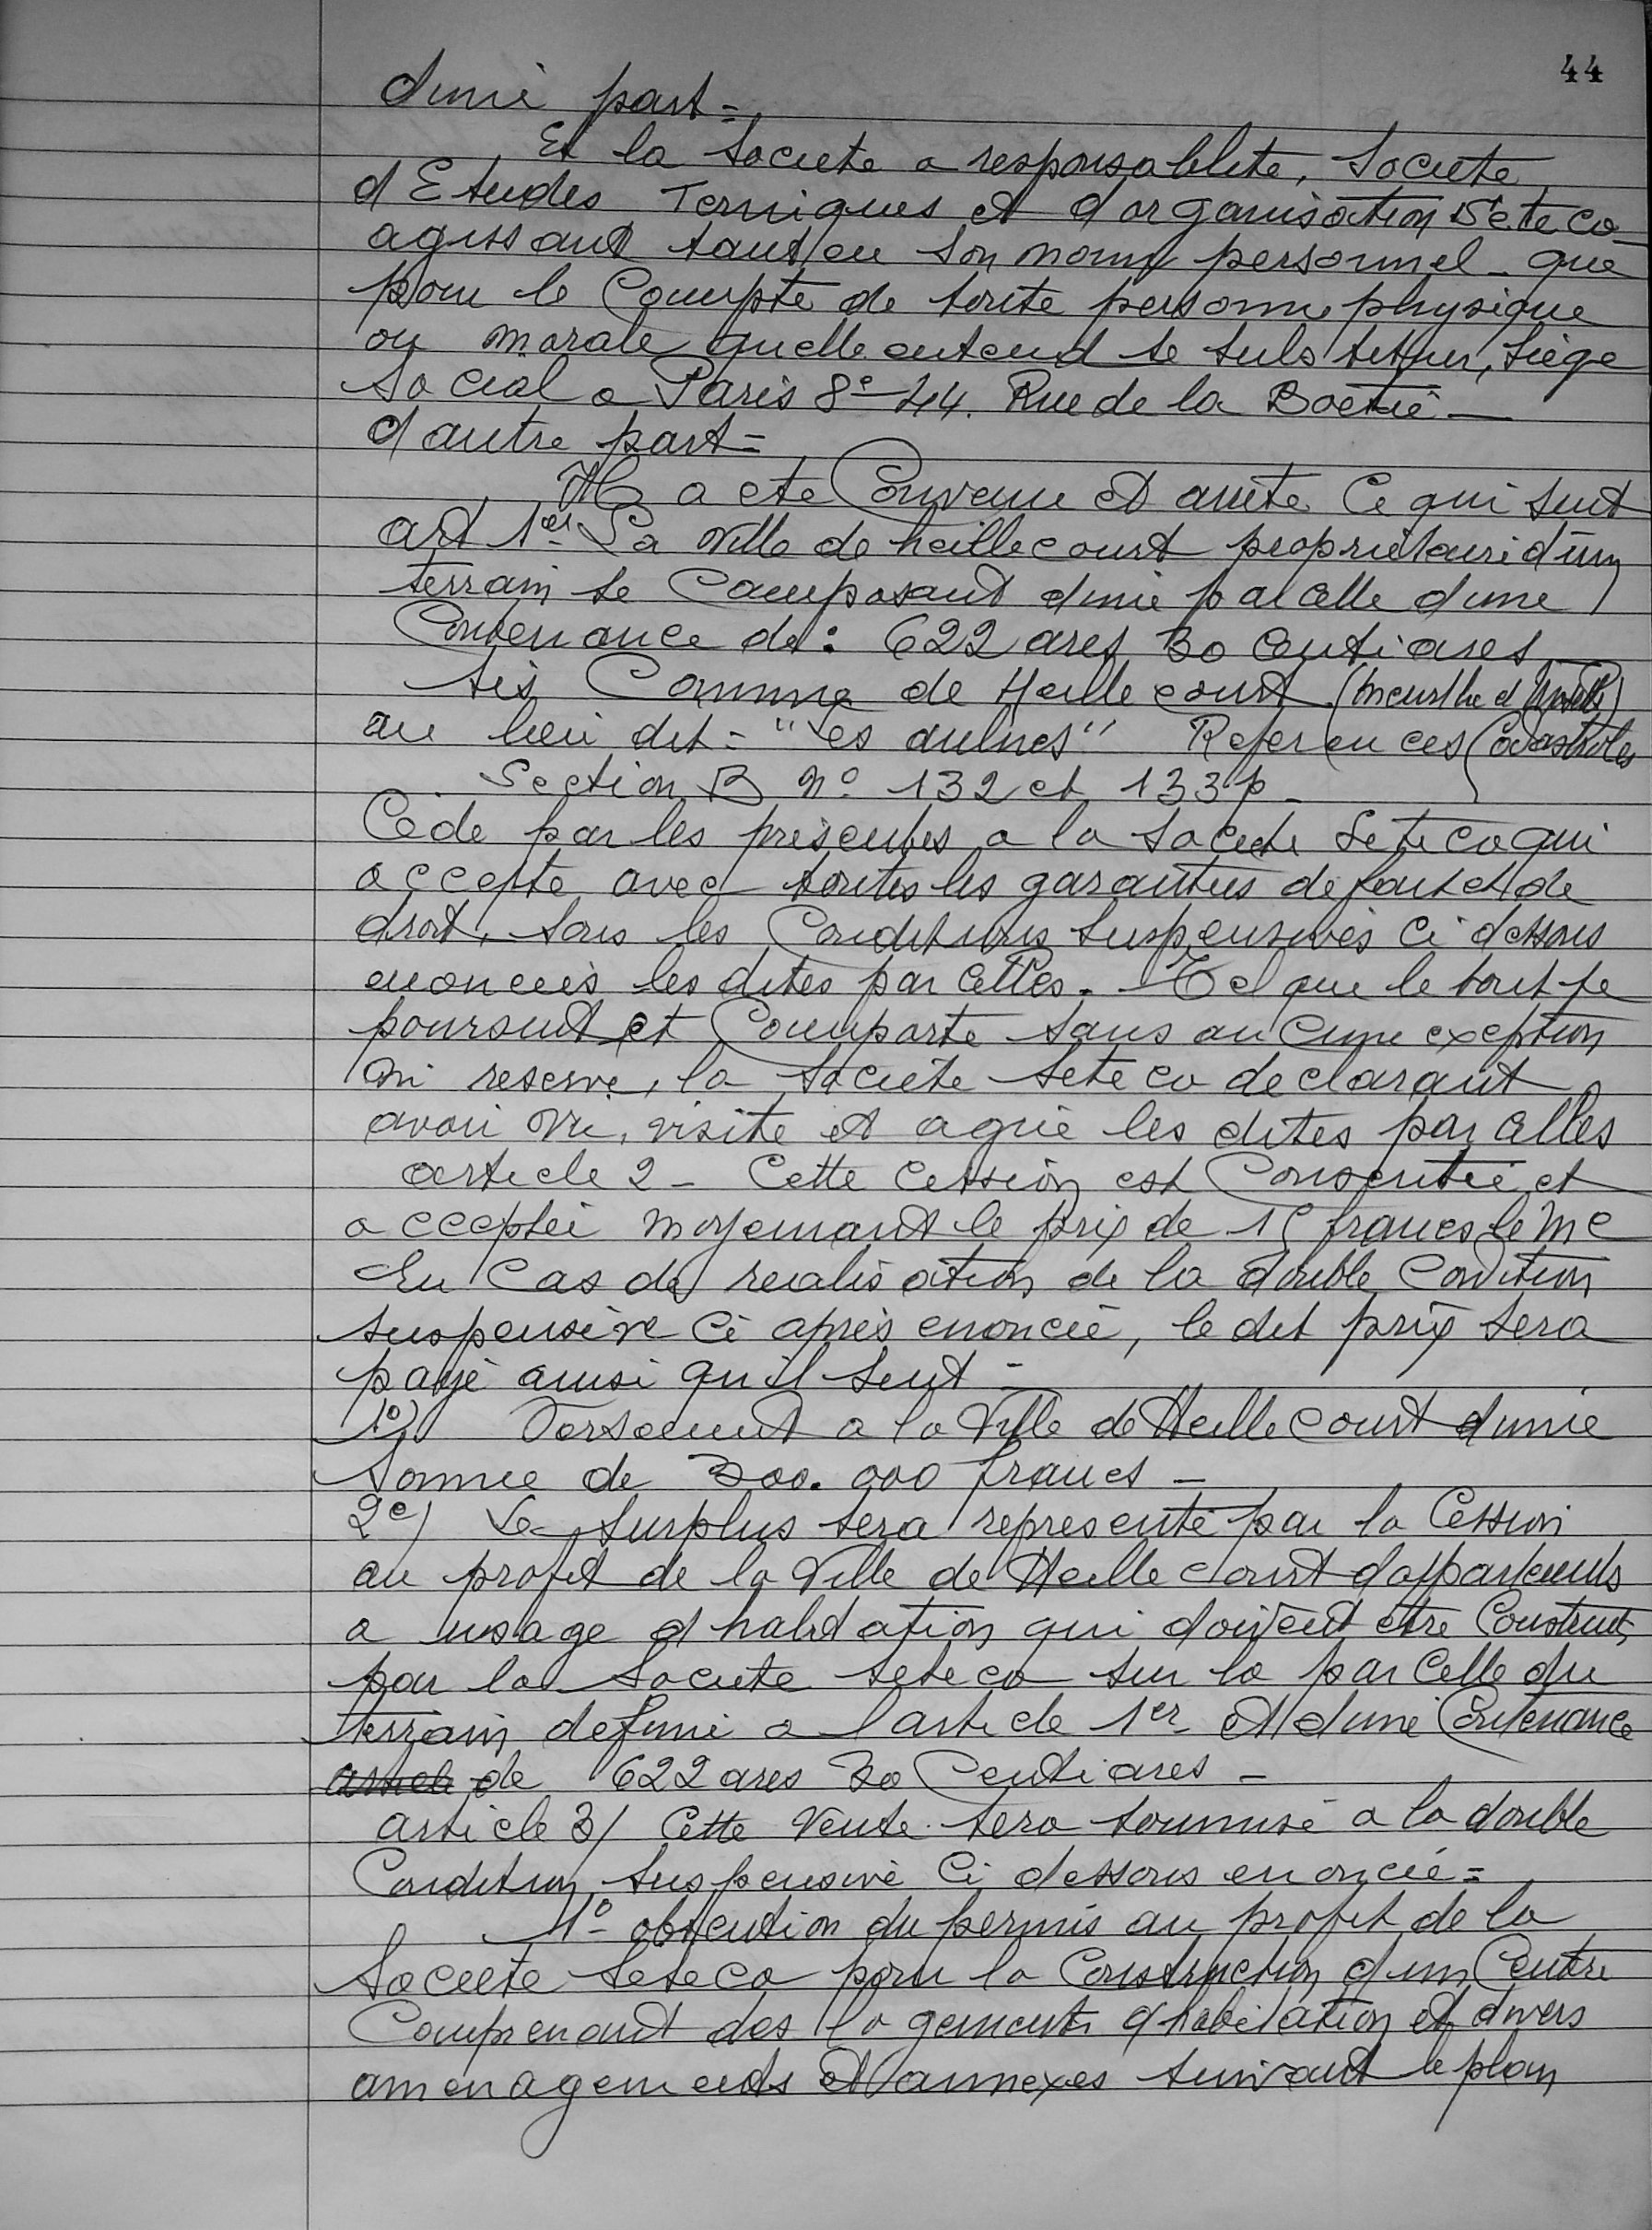 44
d'une part =
Et la Societe a responsablite, Societe
d Etudes Terniques et d'organisation Seteco
agissant tant en son nom personnel - que
pour le Compte de toute personne physique
ou morale qu'elle entend se substituer, siège
social a Paris 8e - 44. Rue de la Boetie -
d autre part =
Il a ete Convenu et arrete Ce qui suit
art 1er La Ville de heillecourt proprietaire d'un
terrain se Composant d'une parcelle d'une
Contenance de : 622 ares 30 Centiares
sis Commune de Heillecourt (Meurthe et Moselle)
au lieu dit = "Les aulnes" References Cadastrales
Section B n° 132 et 133p -
Cede par les présentes a la Societe Seteco qui
accepte avec toutes les garanties de fait et de
droit, sous les Conditions suspensives Ci dessous
enoncées les dites parcelles. Tel que le tout se
poursuit et Comporte sans aucune exception
ni reserve, la Societe Seteco declarant
avoir vu, visité et agrée les dites parcelles
article 2 - Cette Cession est Consentie et
acceptée moyennant le prix de 15 francs le M C
En Cas de realisation de la double Condition
suspensive Ci après enoncée, le dit prix sera
payé ainsi qu'il suit =
1°) Versement a la Ville de Heillecourt d'une
somme de 300.000 francs -
2e) Le surplus sera representé par la Cession
au profit de la Ville de Heillecourt d'appartements
a usage d habitation qui doivent etre Construits
par la Societe Seteco sur la parcelle du
terrain defini a l'article 1er et d'une Contenance
article de 622 ares 30 Centiares -
article 3/ Cette Vente sera soumise a la double
Condition suspensive Ci dessous enoncée =
1° obtention du permis au profit de la
Societe Seteco pour la Construction d'un Centre
Comprenant des logements d'habitation et divers
amenagements et annexes suivant le plan